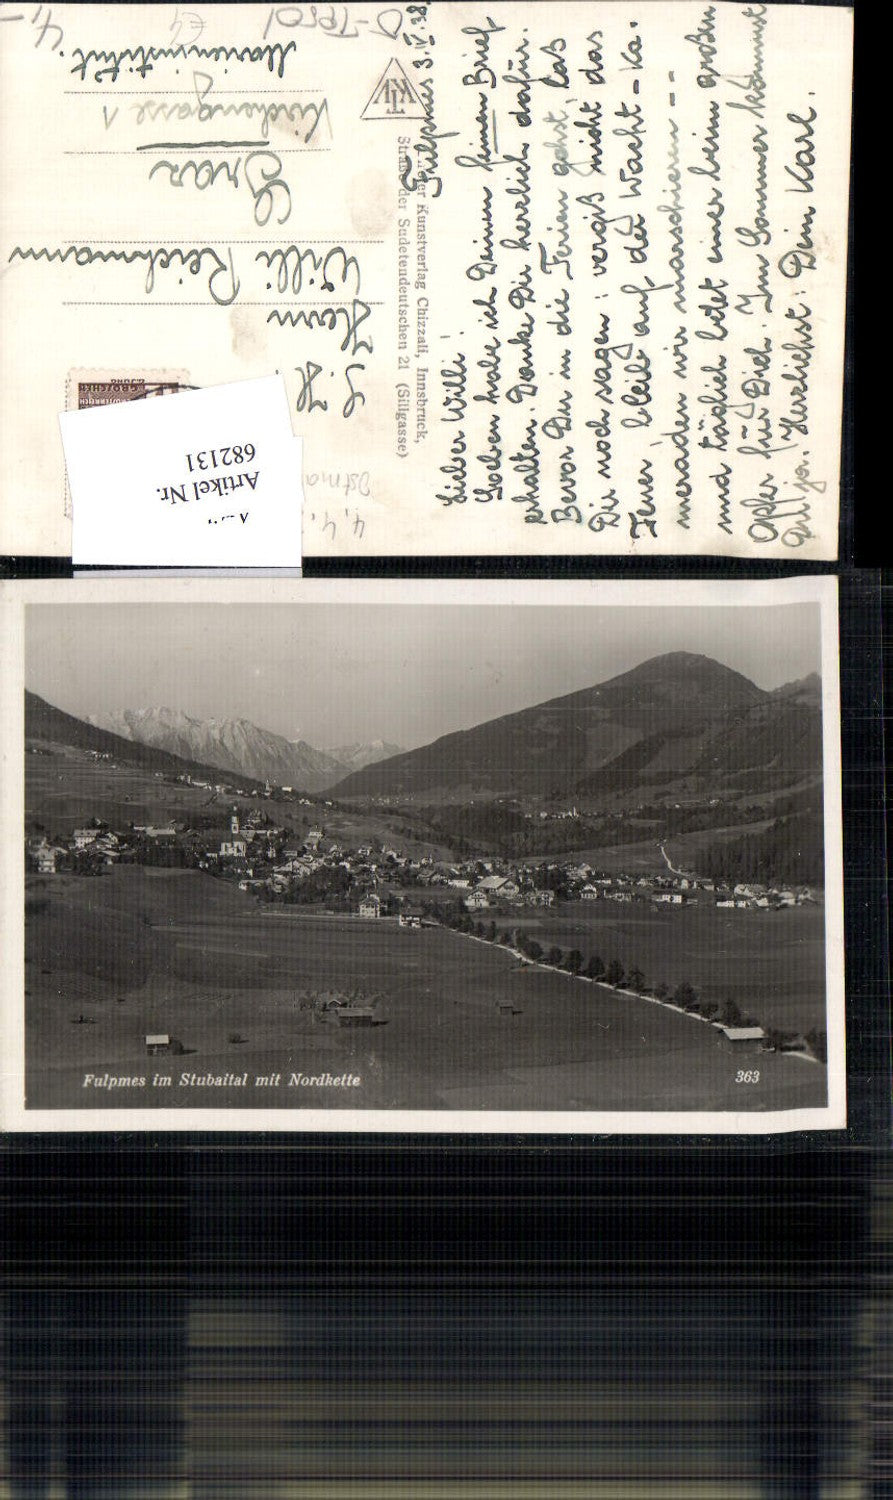 Fulpmes 3.IV.38.
Lieber Willi!
Soeben habe ich Deinen feinen Brief
erhalten. Danke Dir herzlich dafür.
Bevor Du in die Ferien gehst, laß
Dir noch sagen: vergiß nicht das
Feuer, bleib auf der Wacht - Ka-
meraden wir marschieren --
und täglich betet einer beim großen
Opfer für Dich. Im Sommer kommst
ja. Herzlichst: Dein Karl.
Kunstverlag Chizzali, Innsbruck,
Straße der Sudetendeutschen 21 (Sillgasse)
TKV
S. H.
Herrn
Willi Reichmann
Graz
Kirchengasse 1
Marieninstitut.
O-Tirol
€4
4,-
4.4.
Ostma
GROSCHEN
Artikel Nr.
682131
Fulpmes im Stubaital mit Nordkette
363